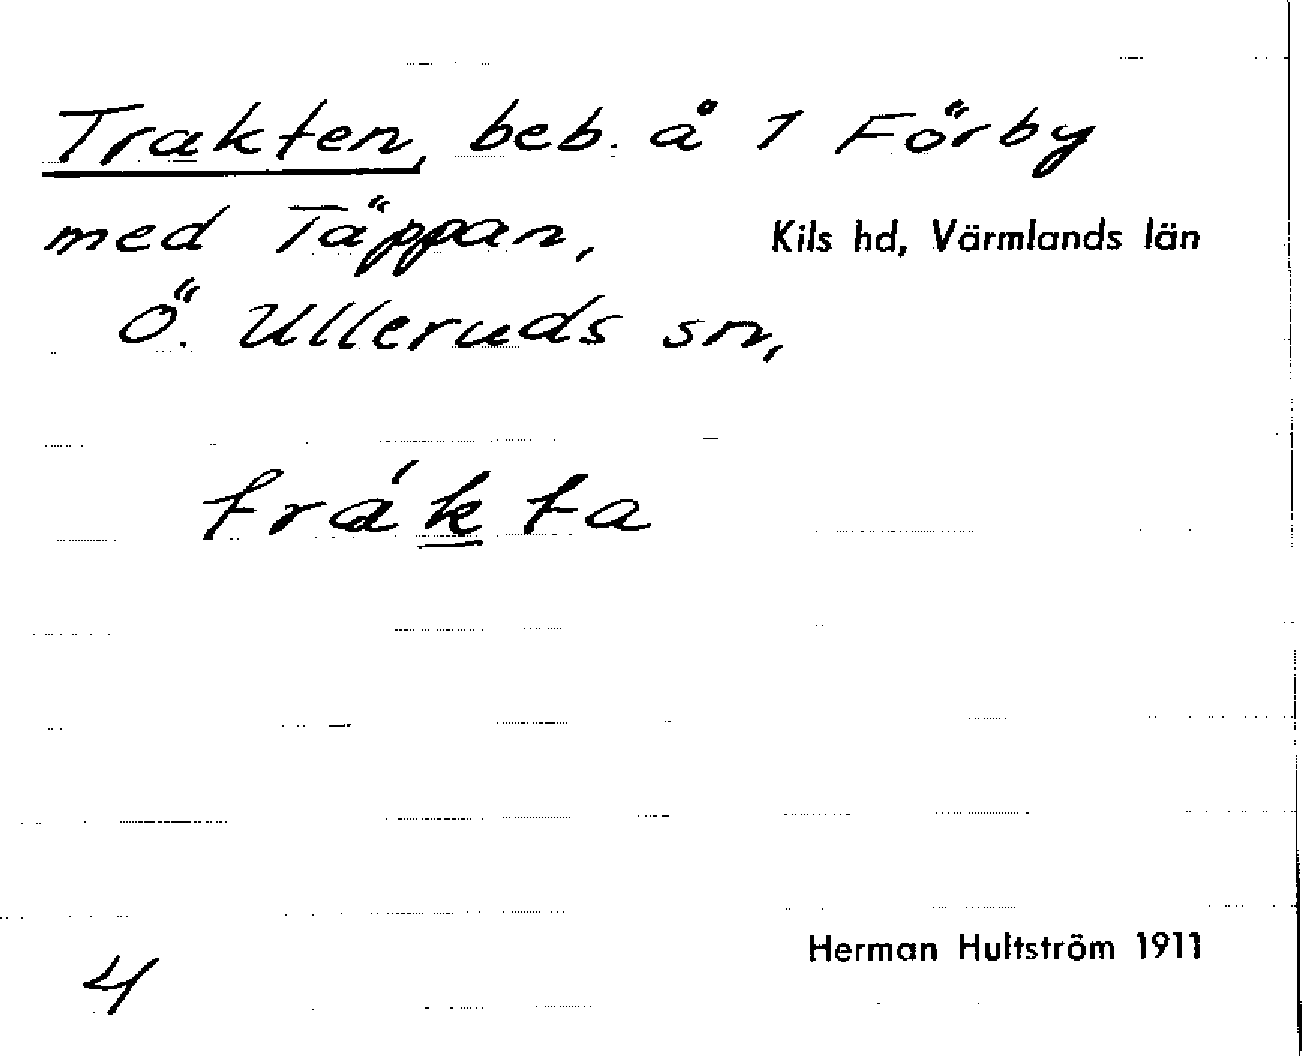 Trakten, beb. å 1 Förby
med Täppan, Kils hd, Värmlands län
Ö. Ulleruds sn,
trákta
Herman Hultström 1911
4